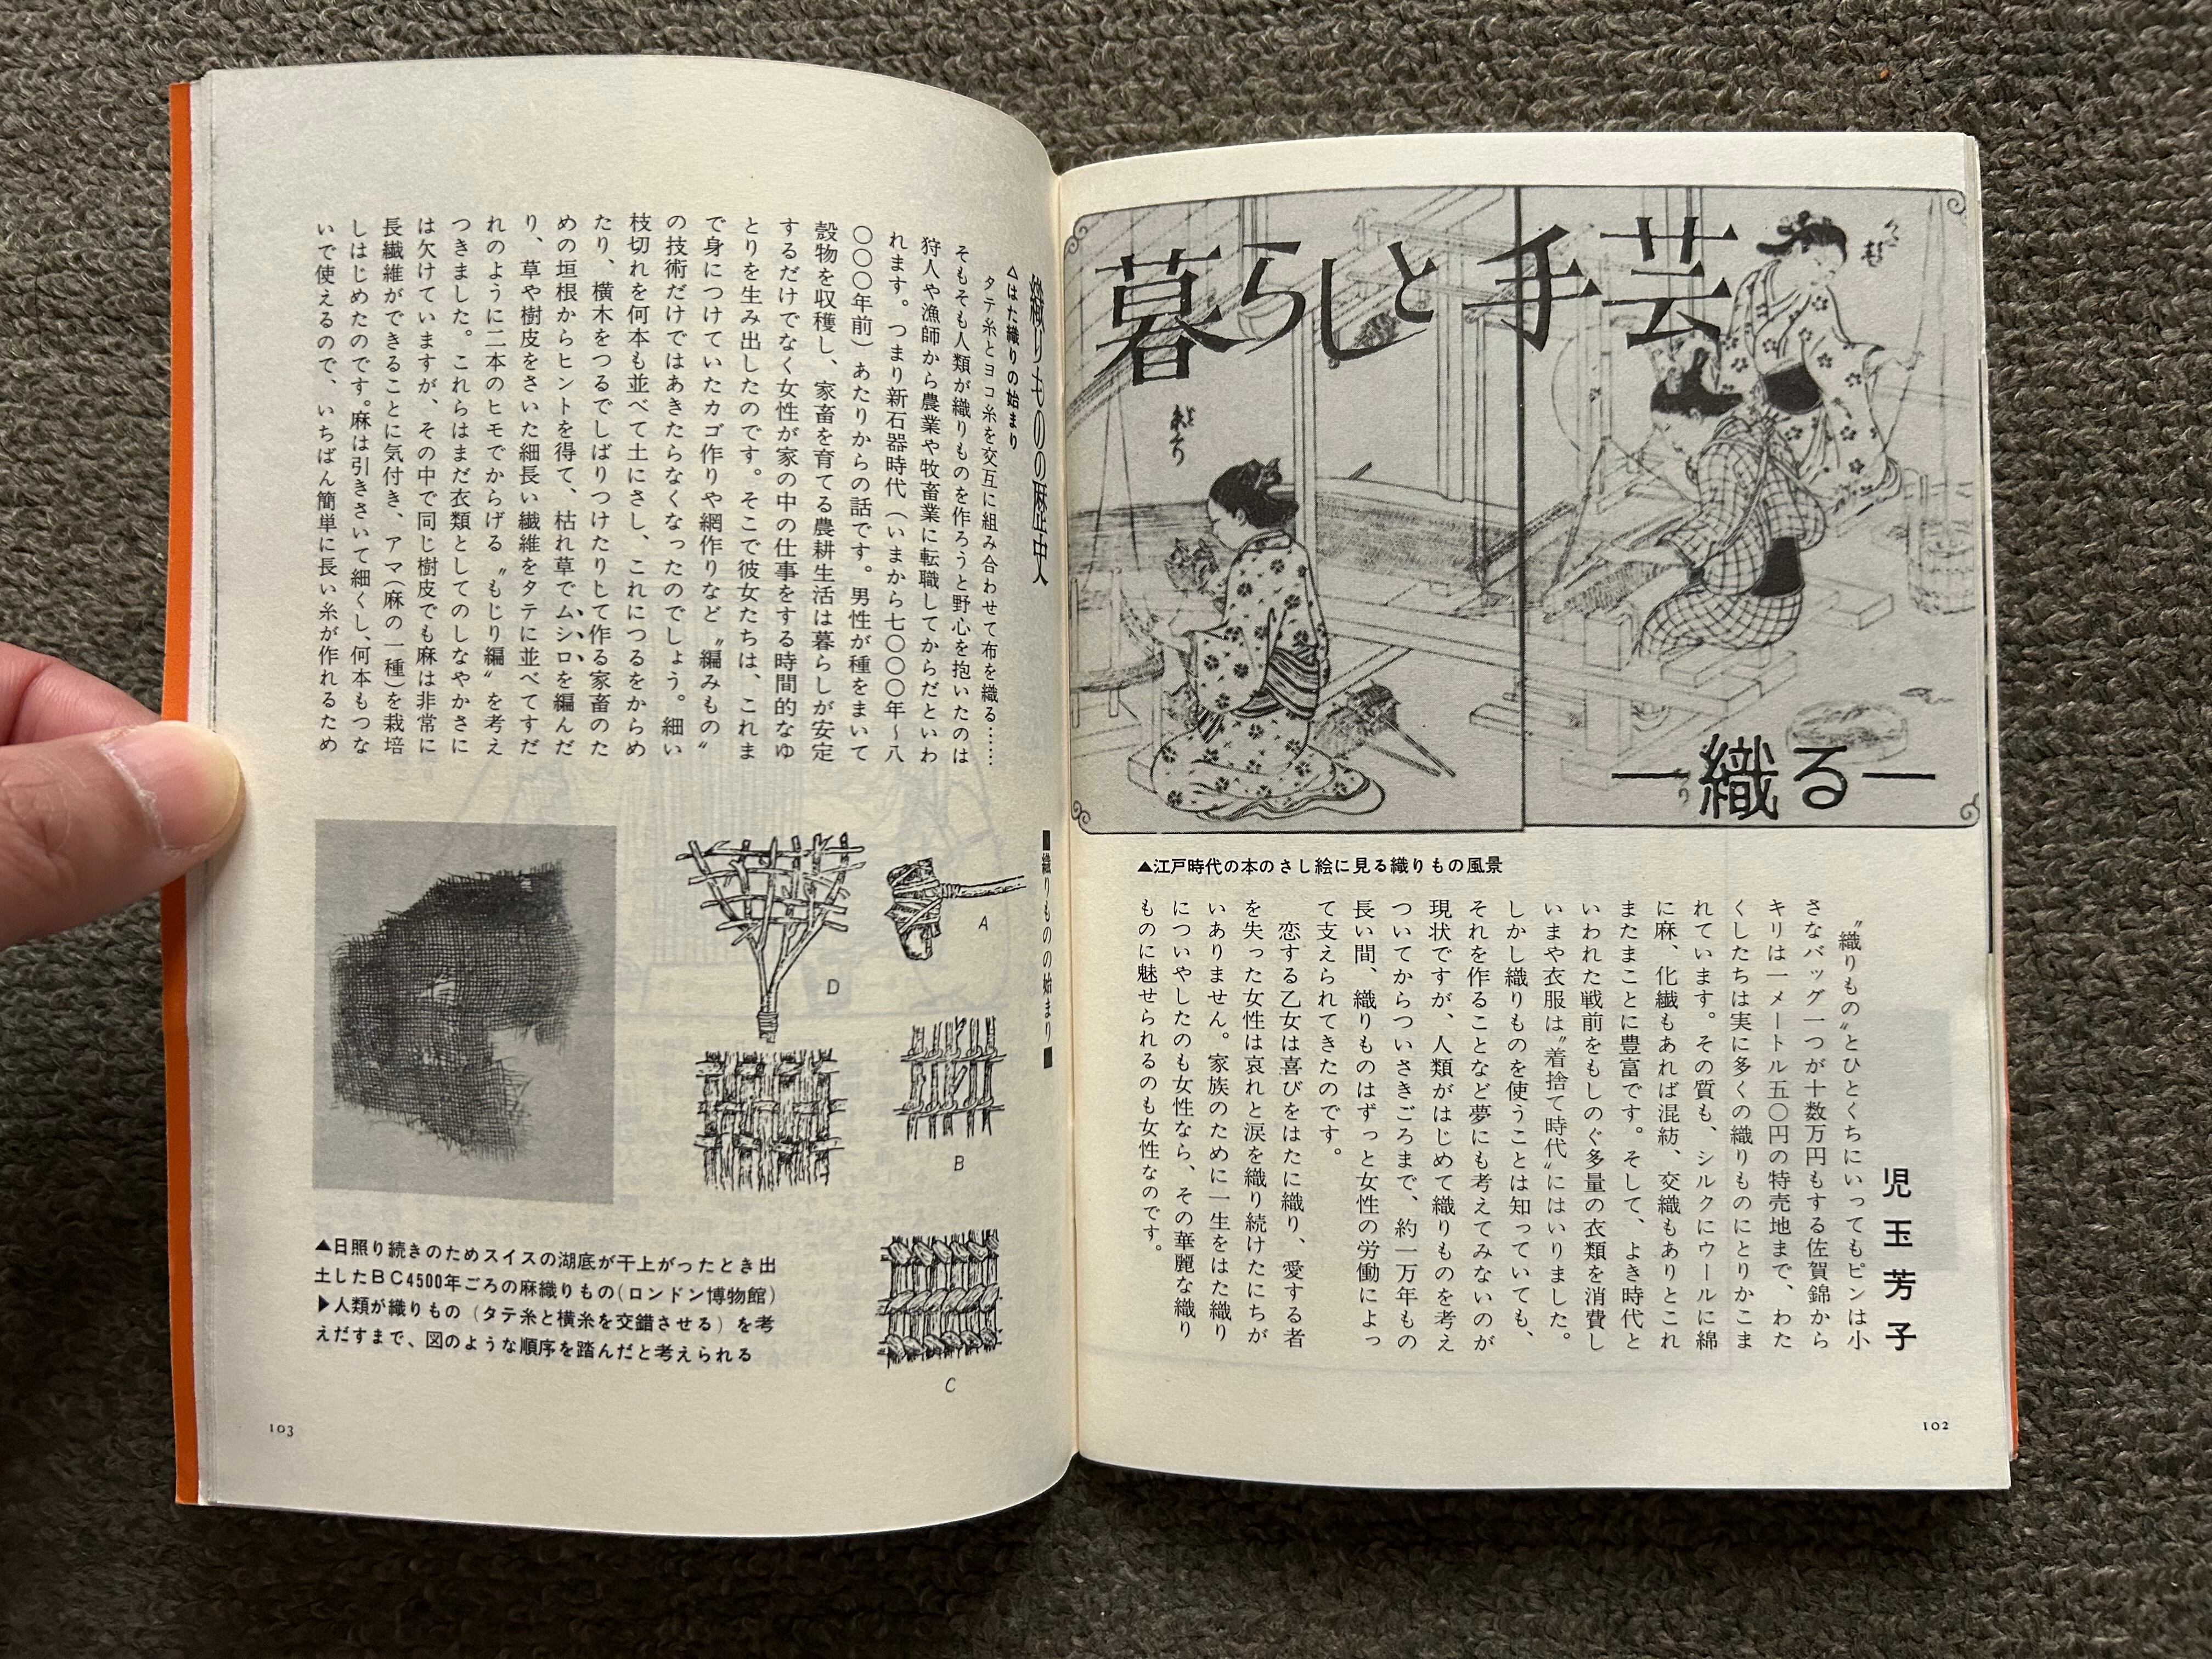 暮らしと手芸
―織る―
▲江戸時代の本のさし絵に見る織りもの風景
児玉芳子
〝織りもの〟とひとくちにいってもピンは小
さなバッグ一つが十数万円もする佐賀錦から
キリは一メートル五〇円の特売地まで、わた
くしたちは実に多くの織りものにとりかこま
れています。その質も、シルクにウールに綿
に麻、化繊もあれば混紡、交織もありとこれ
またまことに豊富です。そして、よき時代と
いわれた戦前をもしのぐ多量の衣類を消費し
いまや衣服は〝着捨て時代〟にはいりました。
しかし織りものを使うことは知っていても、
それを作ることなど夢にも考えてみないのが
現状ですが、人類がはじめて織りものを考え
ついてからついさきごろまで、約一万年もの
長い間、織りものはずっと女性の労働によっ
て支えられてきたのです。
恋する乙女は喜びをはたに織り、愛する者
を失った女性は哀れと涙を織り続けたにちが
いありません。家族のために一生をはた織り
についやしたのも女性なら、その華麗な織り
ものに魅せられるのも女性なのです。
102
織りものの歴史
＜はた織りの始まり
タテ糸とヨコ糸を交互に組み合わせて布を織る……
そもそも人類が織りものを作ろうと野心を抱いたのは
狩人や漁師から農業や牧畜業に転職してからだといわ
れます。つまり新石器時代（いまから七〇〇〇年～八
〇〇〇年前）あたりからの話です。男性が種をまいて
穀物を収穫し、家畜を育てる農耕生活は暮らしが安定
するだけでなく女性が家の中の仕事をする時間的なゆ
とりを生み出したのです。そこで彼女たちは、これま
で身につけていたカゴ作りや網作りなど〝編みもの〟
の技術だけではあきたらなくなったのでしょう。細い
枝切れを何本も並べて土にさし、これにつるをからめ
たり、横木をつるでしばりつけたりして作る家畜のた
めの垣根からヒントを得て、枯れ草でムシロを編んだ
り、草や樹皮をさいた細長い繊維をタテに並べてすだ
れのように二本のヒモでからげる〝もじり編〟を考え
つきました。これらはまだ衣類としてのしなやかさに
は欠けていますが、その中で同じ樹皮でも麻は非常に
長繊維ができることに気付き、アマ（麻の一種）を栽培
しはじめたのです。麻は引きさいて細くし、何本もつな
いで使えるので、いちばん簡単に長い糸が作れるため
■織りものの始まり■
A
B
C
D
▲日照り続きのためスイスの湖底が干上がったとき出
土したBC4500年ごろの麻織りもの（ロンドン博物館）
▶人類が織りもの（タテ糸と横糸を交錯させる）を考
えだすまで、図のような順序を踏んだと考えられる
103